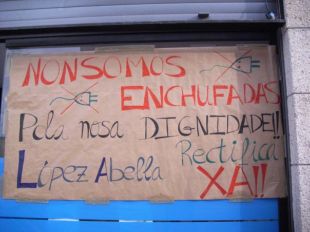 NON SOMOS
ENCHUFADAS
Pola nosa DIGNIDADE!!
López Abella Rectifica
XA!!